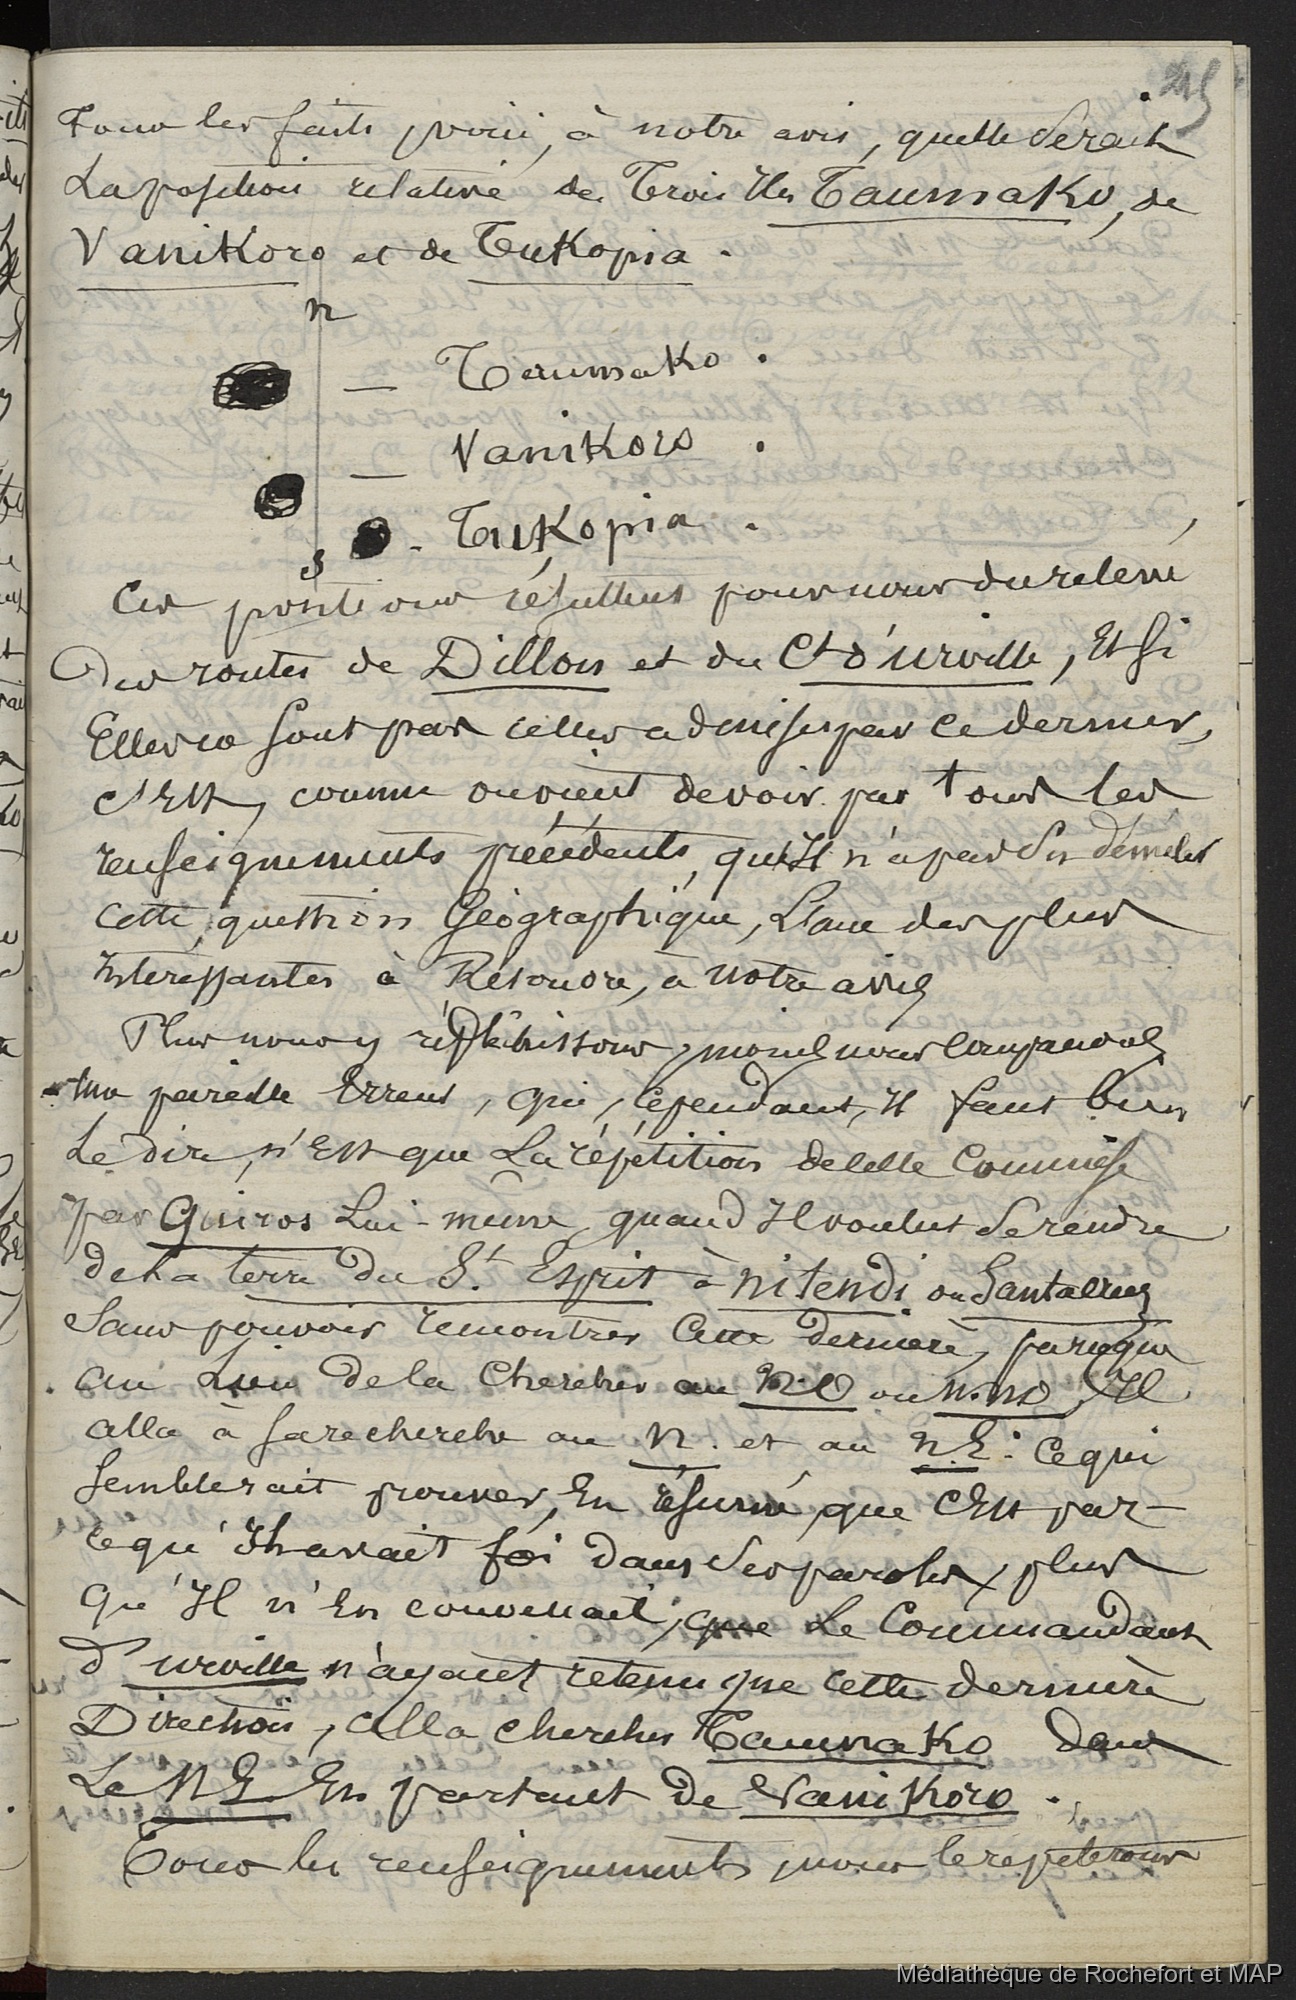 215
Tous les faits, voici, à notre avis, quelle serait
La position relative des Trois Iles Taumako, de
Vanikoro et de Tukopia.
n
— Taumako.
— Vanikoro.
s - Tukopia.
Ces positions résultent pour nous du relevé
Des routes de Dillon et du Ct d'urville, Et si
Elles ne sont pas celles admises par ce dernier,
C'Est, comme on vient de voir par tous les
renseignements précédents, qu'Il n'a pas su démêler
cette question Géographique, L'une des plus
Interessantes à Résoudre, à notre avis,
Plus nous y réfléchissons, moins nous comprenons
Une pareille Erreur, qui, cependant, Il faut bien
Le dire, n'Est que La répétition de celle Commise
par Quiros Lui-même, quand Il voulut se rendre
de La terre du St Esprit à nitendi ou Santa Cruz
Sans pouvoir rencontrer Cette dernière, parceque
au Lieu de la Chercher au N.O ou N.NO, Il
alla à sa recherche au N. et au N.E. Ce qui
semblerait prouver, En résumé, que C'Est par-
ce qu'Il avait foi dans ses paroles, plus
qu'Il n'En convenait, que Le Commandant
d'urville n'ayant retenu que cette dernière
Direction, alla chercher Taumako dans
Le NE En partant de Vanikoro.
Tous les renseignements, nous le répéterons
Médiathèque de Rochefort et MAP